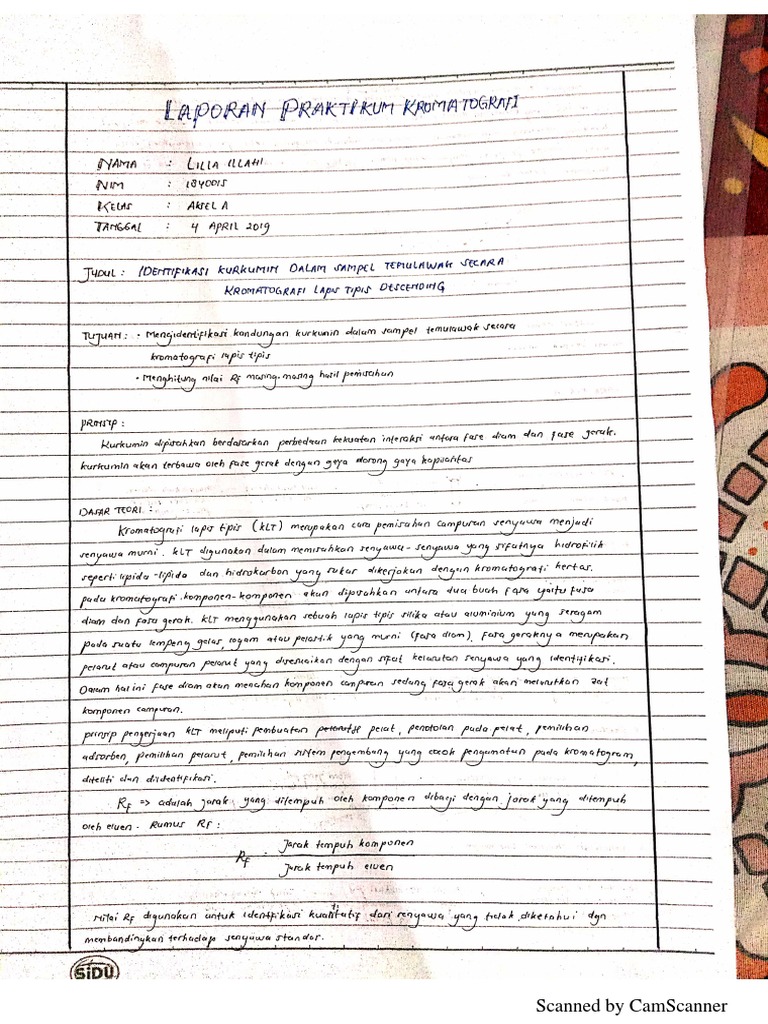 LAPORAN PRAKTIKUM KROMATOGRAFI
NAMA : LILLA ILLAHI
NIM : 1840015
KELAS : AKSEL A
TANGGAL : 4 APRIL 2019
JUDUL : IDENTIFIKASI KURKUMIN DALAM SAMPEL TEMULAWAK SECARA
KROMATOGRAFI LAPIS TIPIS DESCENDING
TUJUAN : • Mengidentifikasi kandungan kurkumin dalam sampel temulawak secara
kromatografi lapis tipis
• Menghitung nilai Rf masing-masing hasil pemisahan
PRINSIP :
Kurkumin dipisahkan berdasarkan perbedaan kekuatan interaksi antara fase diam dan fase gerak.
kurkumin akan terbawa oleh fase gerak dengan gaya dorong gaya kapilalitas
DASAR TEORI :
Kromatografi lapis tipis (KLT) merupakan cara pemisahan campuran senyawa menjadi
senyawa murni. KLT digunakan dalam memisahkan senyawa-senyawa yang sifatnya hidrofilik
seperti lipida-lipida dan hidrokarbon yang sukar dikerjakan dengan kromatografi kertas.
pada kromatografi, komponen-komponen akan dipisahkan antara dua buah fasa yaitu fasa
diam dan fasa gerak. KLT menggunakan sebuah lapis tipis silika atau aluminium yang seragam
pada suatu lempeng gelas, logam atau pelastik yang murni (fasa diam). Fasa geraknya merupakan
pelarut atau campuran pelarut yang disesuaikan dengan sifat kelarutan senyawa yang identifikasi.
Dalam hal ini fase diam akan menahan komponen campuran sedang fasa gerak akan melarutkan zat
komponen campuran.
prinsip pengerjaan KLT meliputi pembuatan pelat, penotolan pada pelat, pemilihan
adsorben, pemilihan pelarut, pemilihan sistem pengembang yang cocok pengamatan pada kromatogram,
diteliti dan diidentifikasi.
Rf => adalah jarak yang ditempuh oleh komponen dibagi dengan jarak yang ditempuh
oleh eluen. Rumus Rf :
Jarak tempuh komponen
Rf =
Jarak tempuh eluen
Nilai Rf digunakan untuk identifikasi kualitatif dari senyawa yang tidak diketahui dgn
membandingkan terhadap senyawa standar.
SiDU
Scanned by CamScanner